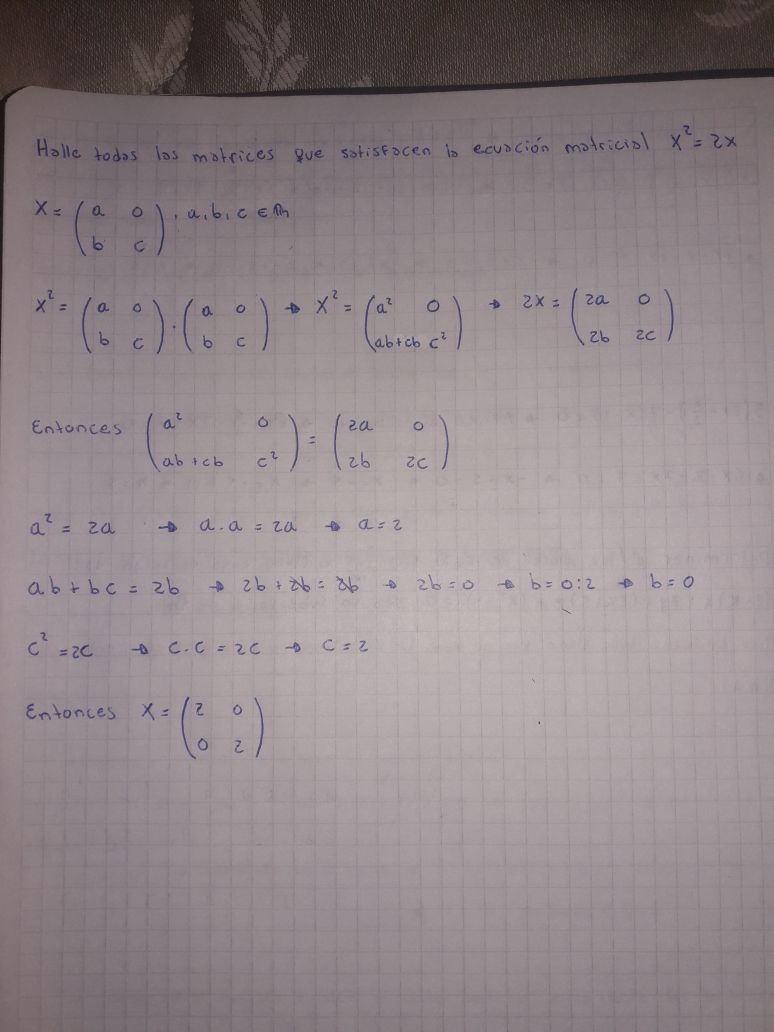 Halle todas las matrices que satisfacen la ecuación matricial X² = 2X
X = ( a 0 ; b c ) , a, b, c ∈ ℝ
X² = ( a 0 ; b c ) · ( a 0 ; b c ) → X² = ( a² 0 ; ab+cb c² ) → 2X = ( 2a 0 ; 2b 2c )
Entonces ( a² 0 ; ab+cb c² ) = ( 2a 0 ; 2b 2c )
a² = 2a → a.a = 2a → a = 2
ab + bc = 2b → 2b + 2b = 2b → 2b = 0 → b = 0:2 → b = 0
c² = 2c → c.c = 2c → c = 2
Entonces X = ( 2 0 ; 0 2 )